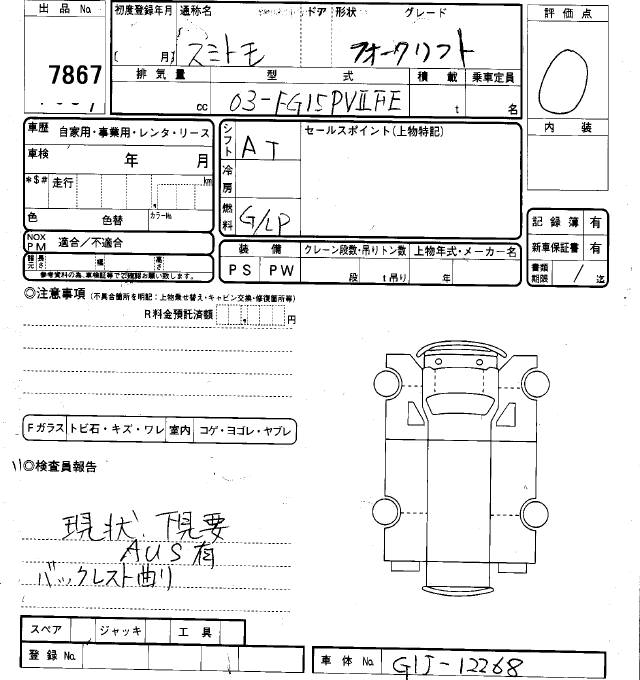 出品No. 初度登録年月 通称名 ドア 形状 グレード 評価点
7867 ( 月) スミトモ フォークリフト
排気量 型式 積載 乗車定員
cc 03-FG15PVⅡFE t 名
車歴 自家用・事業用・レンタ・リース シフト AT セールスポイント(上物特記) 内装
車検 年 月
*$# 走行 km 冷房
色 色替 カラーNo. 燃料 G/LP
記録簿 有
NOX PM 適合/不適合 装備 クレーン段数・吊りトン数 上物年式・メーカー名 新車保証書 有
諸元 長さ 幅 高さ PS PW 段 t吊り 年 書類期限 / 迄
参考資料の為、車検証等でご確認お願い致します。
◎注意事項 (不具合箇所を明記:上物乗せ替え・キャビン交換・修復箇所等)
R料金預託済額 円
Fガラス トビ石・キズ・ワレ 室内 コゲ・ヨゴレ・ヤブレ
◎検査員報告
現状、下見要
AUS有
バックレスト曲り
スペア ジャッキ 工具
登録No. 車体No. G1J-12268